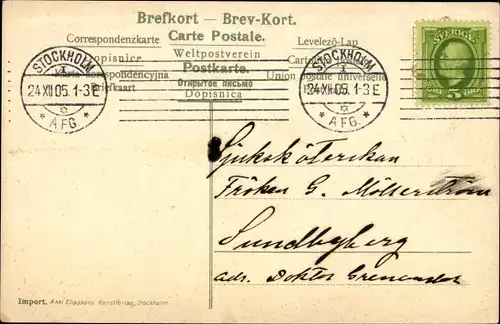 Brefkort — Brev-Kort.
Correspondenzkarte Carte Postale. Levelező-Lap
Dopisnice Weltpostverein
Karta korespondencyjna Postkarte. Union postale universelle
Briefkaart Открытое письмо
Dopisnica
STOCKHOLM
1
24 XII 05. 1-3 E
* AFG. *
STOCKHOLM
1
24 XII 05. 1-3 E
* AFG. *
SVERIGE
5
Sjuksköterskan
Fröken G. Möllerström
Sundbyberg
adr. Doktor
Import. Axel Eliassons Konstförlag, Stockholm.